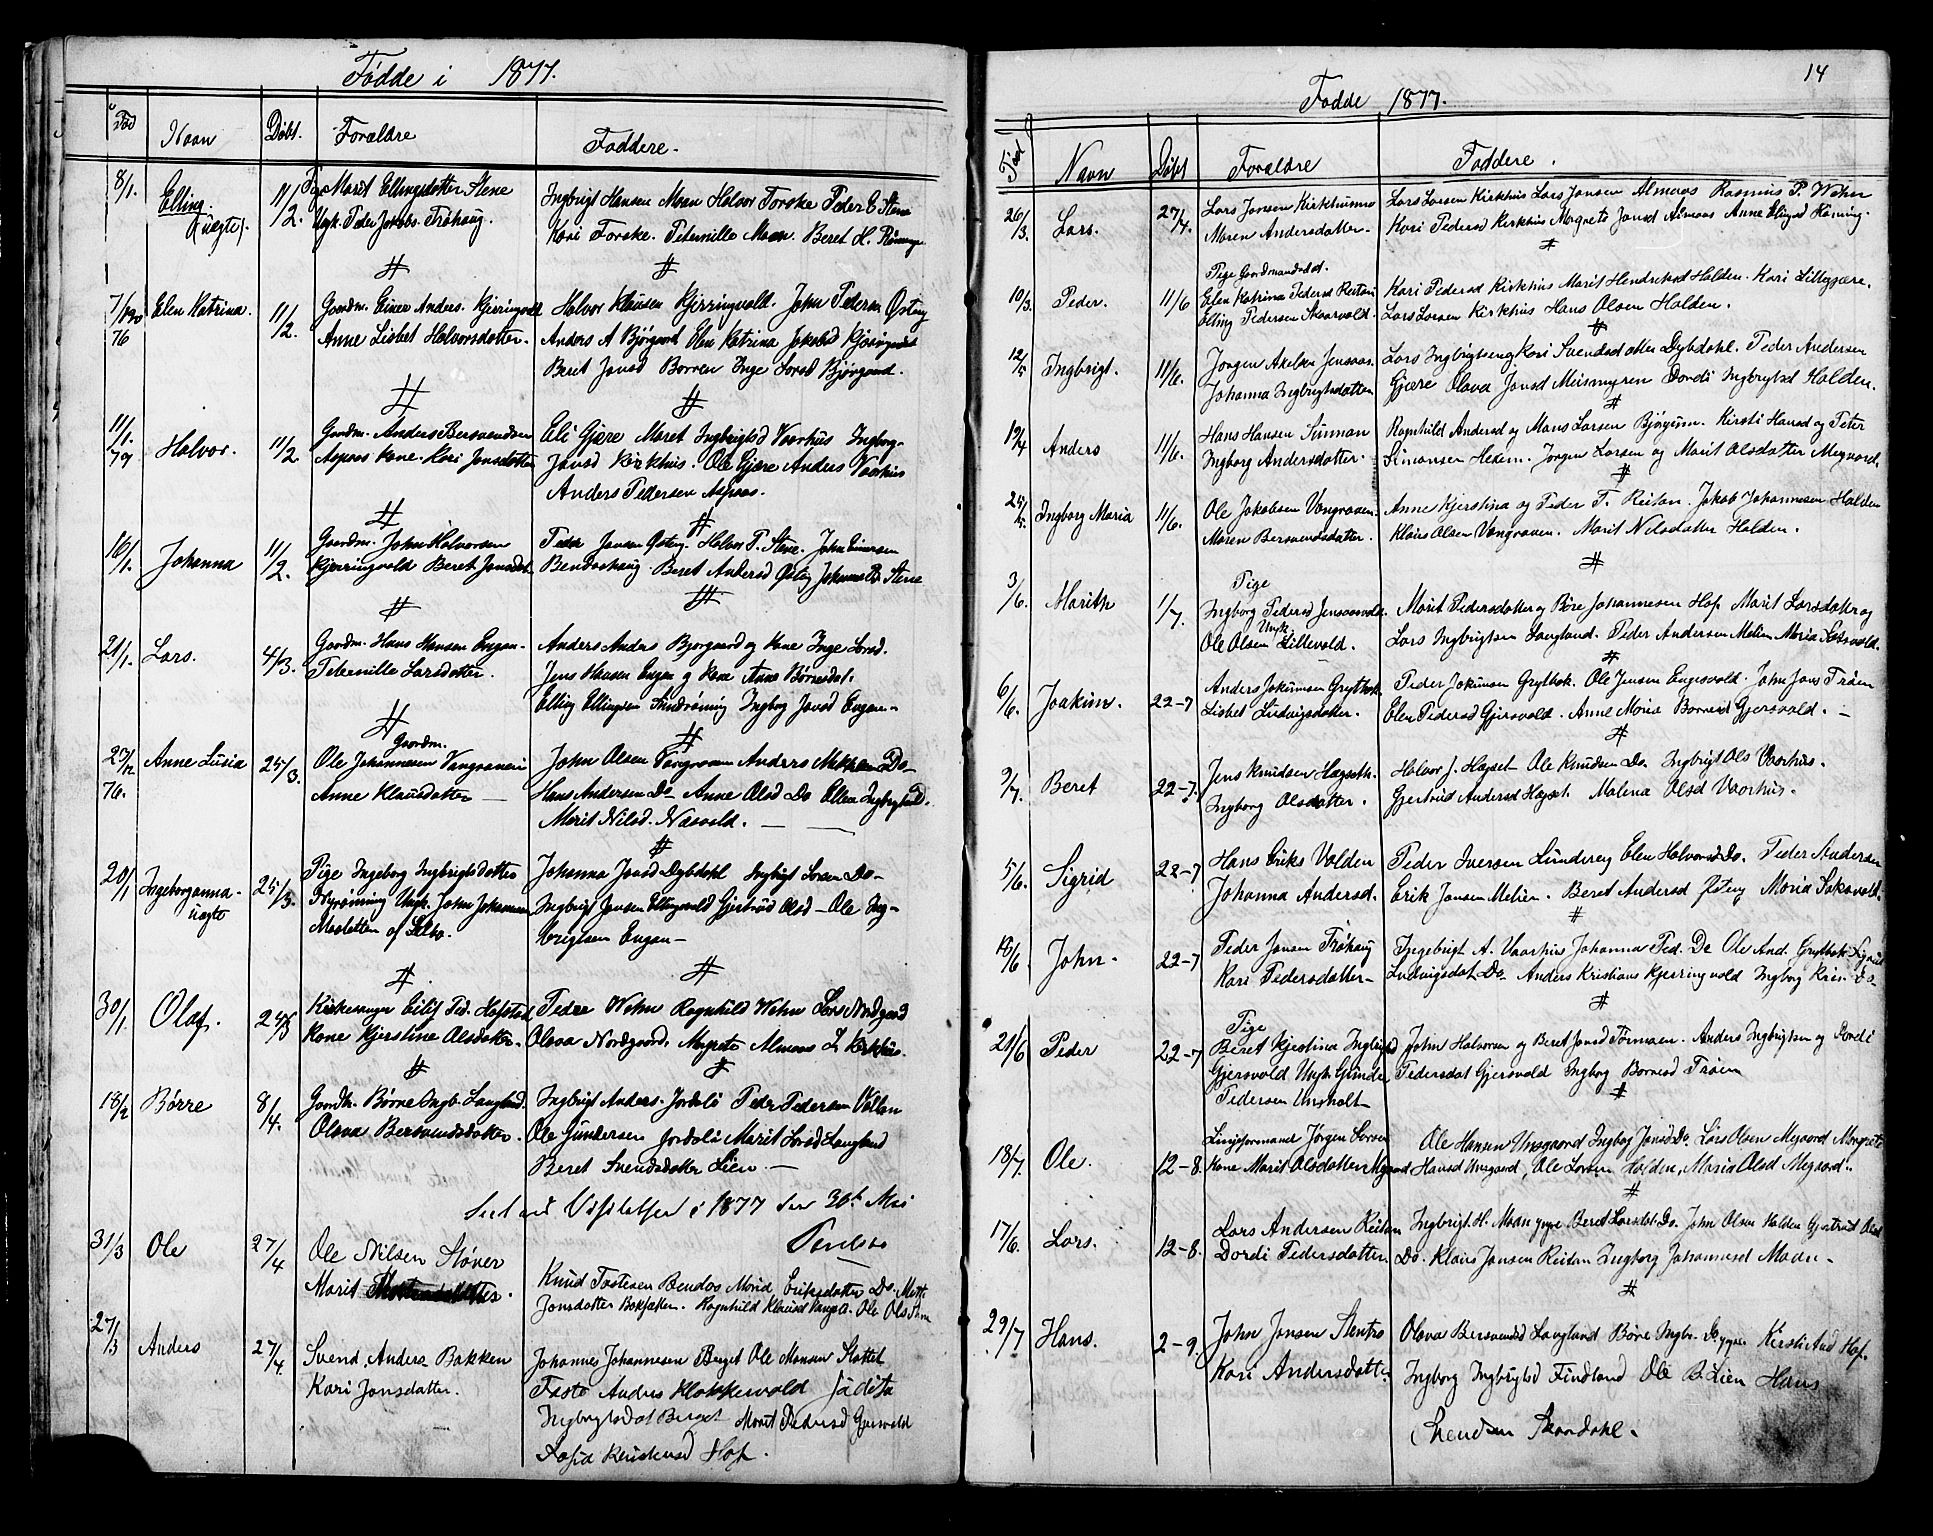 Fødde i 1877.
Fød Navn Døbt. Forældre Faddere.
8/1. Elling (uægte). 11/2. Pige Marit Ellingsdatter Stene
Ungk. Peder Jakobs. Trøhaug.
Ingbrigt Hansen Moen Halvor Forske Peder E. Stene
Kari Forske. Peternille Moen. Beret H. Rønninge
7/12 76 Elen Katrina. 11/2. Gaardm. Einer Anders. Kjerringvold
Anne Lisbet Halvorsdatter.
Halvor Klausen Kjerringvold. John Pedersen Østeng
Anders A Bjørgaard Elen Katrina Jakobsd Kjerringvold
Berit Jonsd Borren Inge Larsd Bjørgaard.
11/1. 77 Halvor. 11/2 Gaardm. Anders Bersvendsen
Aspaas Kone Kari Jonsdatter
Eli Gjære Maret Ingbrigtsd Vaarhus Ingborg
Jonsd Kirkhus. Ole Gjære Anders Vaarhus
Anders Pedersen Aspaas.
16/1. Johanna 11/2. Gaardm. John Halvorsen
Kjerringvold Beret Jonsdat
Peder Jensen Østeng. Halvor P. Stene. John Einersen
Bendoshaug. Beret Andersd Østeng Johanna P. Stene
21/1. Lars. 4/3. Gaardm. Hans Hansen Engan
Peternille Larsdatter.
Anders Anders Bjørgaard og Kone Inge Larsd.
Jens Hansen Engan og Kone Anne Børresdat.
Elling Ellingsen Sundrønning Ingborg Jonsd Engan
25/12 76. Anne Lusia 25/3. Gaardm.
Ole Johannesen Vangraven
Anne Klausdatter
John Olsen Vangraven Anders Do
Hans Andersen Do Anne Olsd Do Ellen Ingbrigtsd.
Merit Nilsd. Næsvold.
20/1 Ingeborganna uægte 25/3. Pige Ingeborg Ingbrigtsdatter
Nyrønning Ungk. John Johannesen
Mosletten af Selbo.
Johanna Jonsd Dybdahl Ingbrigt Larsen Do
Ingbrigt Jonsen Ellingvold Gjertrud Olsd Ole Ing-
brigtsen Engan
30/1. Olaf. 25/3 Kirkesanger Eilif Ped. Hofstad
Kone Kjerstine Olsdatter.
Peder Wehn Ragnhild Wehn Lars Nordgaard
Olava Nordgaard. Magrete Almaas L Kirkhus.
18/2 Børre 8/4. Gaardm. Børre Ingb. Langland.
Olava Bersvendsdatter.
Ingbrigt Anders. Jordalø Peder Pedersen Vollan
Ole Gundersen Jordalø Marit Larsd Langland
Beret Svendsdatter Lien.
Seet ved Visitatsen i 1877 den 30te Mai
31/3 Ole 27/4 Ole Nilsen Støver
Marit
Knud Tostesen Bendos Marid Eriksdatter Do.
Jonsdatter Ragnhild Klausd Ole Ols
27/3 Anders 27/4 Svend Anders Bakken
Kari Jonsdatter.
Johannes Johannesen Berget Ole Monsen Slottet
Toste Anders Klokkervold
Ingbrigtsdat Berget Marit Pedersd Gjersvold
Hof.
14
Fødde 1877.
Fød Navn Døbt Forældre Faddere.
26/3. Lars. 27/4. Lars Jonsen Kirkhusmo
Maren Andersdatter
Lars Larsen Kirkhus Lars Jansen Almaas Rasmus P. Wehn
Kari Pedersd Kirkhus Magrete Jonsd Almaas Anne Elingsd Rønning.
10/3. Peder. 11/6 Pige Gaardmandsdat.
Elen Katrina Pedersd Reitan
Elling Pedersen Skaarvold.
Kari Pedersd Kirkhus Marit Hendriksd Halden. Kari Lillegjære.
Lars Larsen Kirkhus Hans Olsen Halden.
12/5 Ingbrigt. 11/6. Jørgen Axelsen Jensaas.
Johanna Ingbrigtsdatter
Lars Ingbrigtsen og Kari Svendsdatter Dybdahl. Peder Andersen
Gjære Olava Jonsd Meismyren Dordi Ingbrigtsd Halden.
19/4 Anders 11/6. Hans Hansen Sunnan
Ingborg Andersdatter.
Ragnhild Andersd og Mons Larsen Bjørgum. Kirsti Hansd og Peter
Simonsen Hexem. Jørgen Larsen og Marit Olsdatter Megaard.
25/5. Ingborg Maria 11/6. Ole Jakobsen Vangraven.
Maren Bersvendsdatter.
Anne Kjerstina og Peder P. Reitan. Jakob Johannesen Halden
Klaus Olsen Vangraven. Marit Nilsdatter Halden.
3/6. Marith 1/7. Pige
Ingborg Pedersd Jensaasvold.
Ungk.
Ole Olsen Lillevold.
Marit Pedersdatter og Børe Johannesen Hof. Marit Larsdatter og
Lars Ingbrigtsen Langland. Peder Andersen Melien Maria Saksvold.
6/6. Joakim. 22-7 Anders Jokumsen Grytbak
Lisbet Ludvigsdatter.
Peder Jokumsen Grytbak. Ole Jensen Engesvold. John Jons Trøen
Elen Pedersd Gjersvold. Anne Maria Borresd Gjersvold.
9/7. Beret 22-7. Jens Knudsen Hagseth.
Ingborg Olsdatter.
Halvor J. Hagset Ole Knudsen Do. Ingbrigt Ols Vaarhus.
Gjertrud Andersd Hagset. Malena Olsd Vaarhus.
5/6. Sigrid 22-7 Hans Eriks Volden
Johanna Andersd.
Peder Iversen Lunden og Elen Halvorsd Do. Peder Andersen
Erik Jansen Melien. Beret Andersd Østeng Marid Saksvold.
18/6 John. 22-7 Peder Jensen Trøhaug
Kari Pedersdatter
Ingebrigt A. Vaarhus Johanna Ped. Do Ole And. Grytbak Sigrid
Ludvigsdat Do. Anders Kristians Kjerringvold Ingborg Kris. Do
21/6 Peder 22-7 Pige
Beret Kjerstina Ingbrigtsd
Gjersvold Ungk Gunder
Pedersen Unsholt
John Halvorsen og Beret Jonsd Tørmoen. Anders Ingbrigtsen og Dordi
Pedersdat Gjersvold Ingborg Borresd Trøen
18/7. Ole. 12-8. Linjeformand Jørgen Larsen
Kone Marit Olsdatter Megaard
Ole Hansen Unsgaard Ingborg Jonsd Do. Lars Olsen Megaard Margrete
Hansd Unsgaard, Ole Larsen Halden, Maria Olsd Megaard.
17/6. Lars. 12-8. Lars Andersen Reitan
Dordi Pedersdatter
Ingbrigt H. Moan yngre Beret Larsdat. Do. John Olsen Halden Gjertrud Olsd
Do. Klaus Jonsen Reitan Ingborg Johannesd Moan
29/7 Hans. 2-9. John Jonsen Stentrø
Kari Andersdatter
Olava Bersvendsd Langland Børe Ingbr. Do yngre Kirsti And Hof.
Ingborg Ingbrigtsd Findland Ole B. Lien Hans
Svendsen Skaardahl.